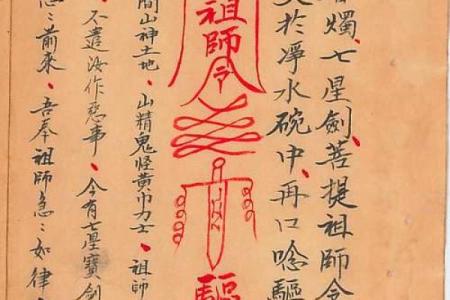 燭、七星劍、菩提祖師令
於淨水碗中、再口唸驅
祖師令
驅
間山神土地、山精鬼怪黃巾力士、祖師
不遣汝作惡事、今有七星寶劍
前來、吾奉祖師急〻如律